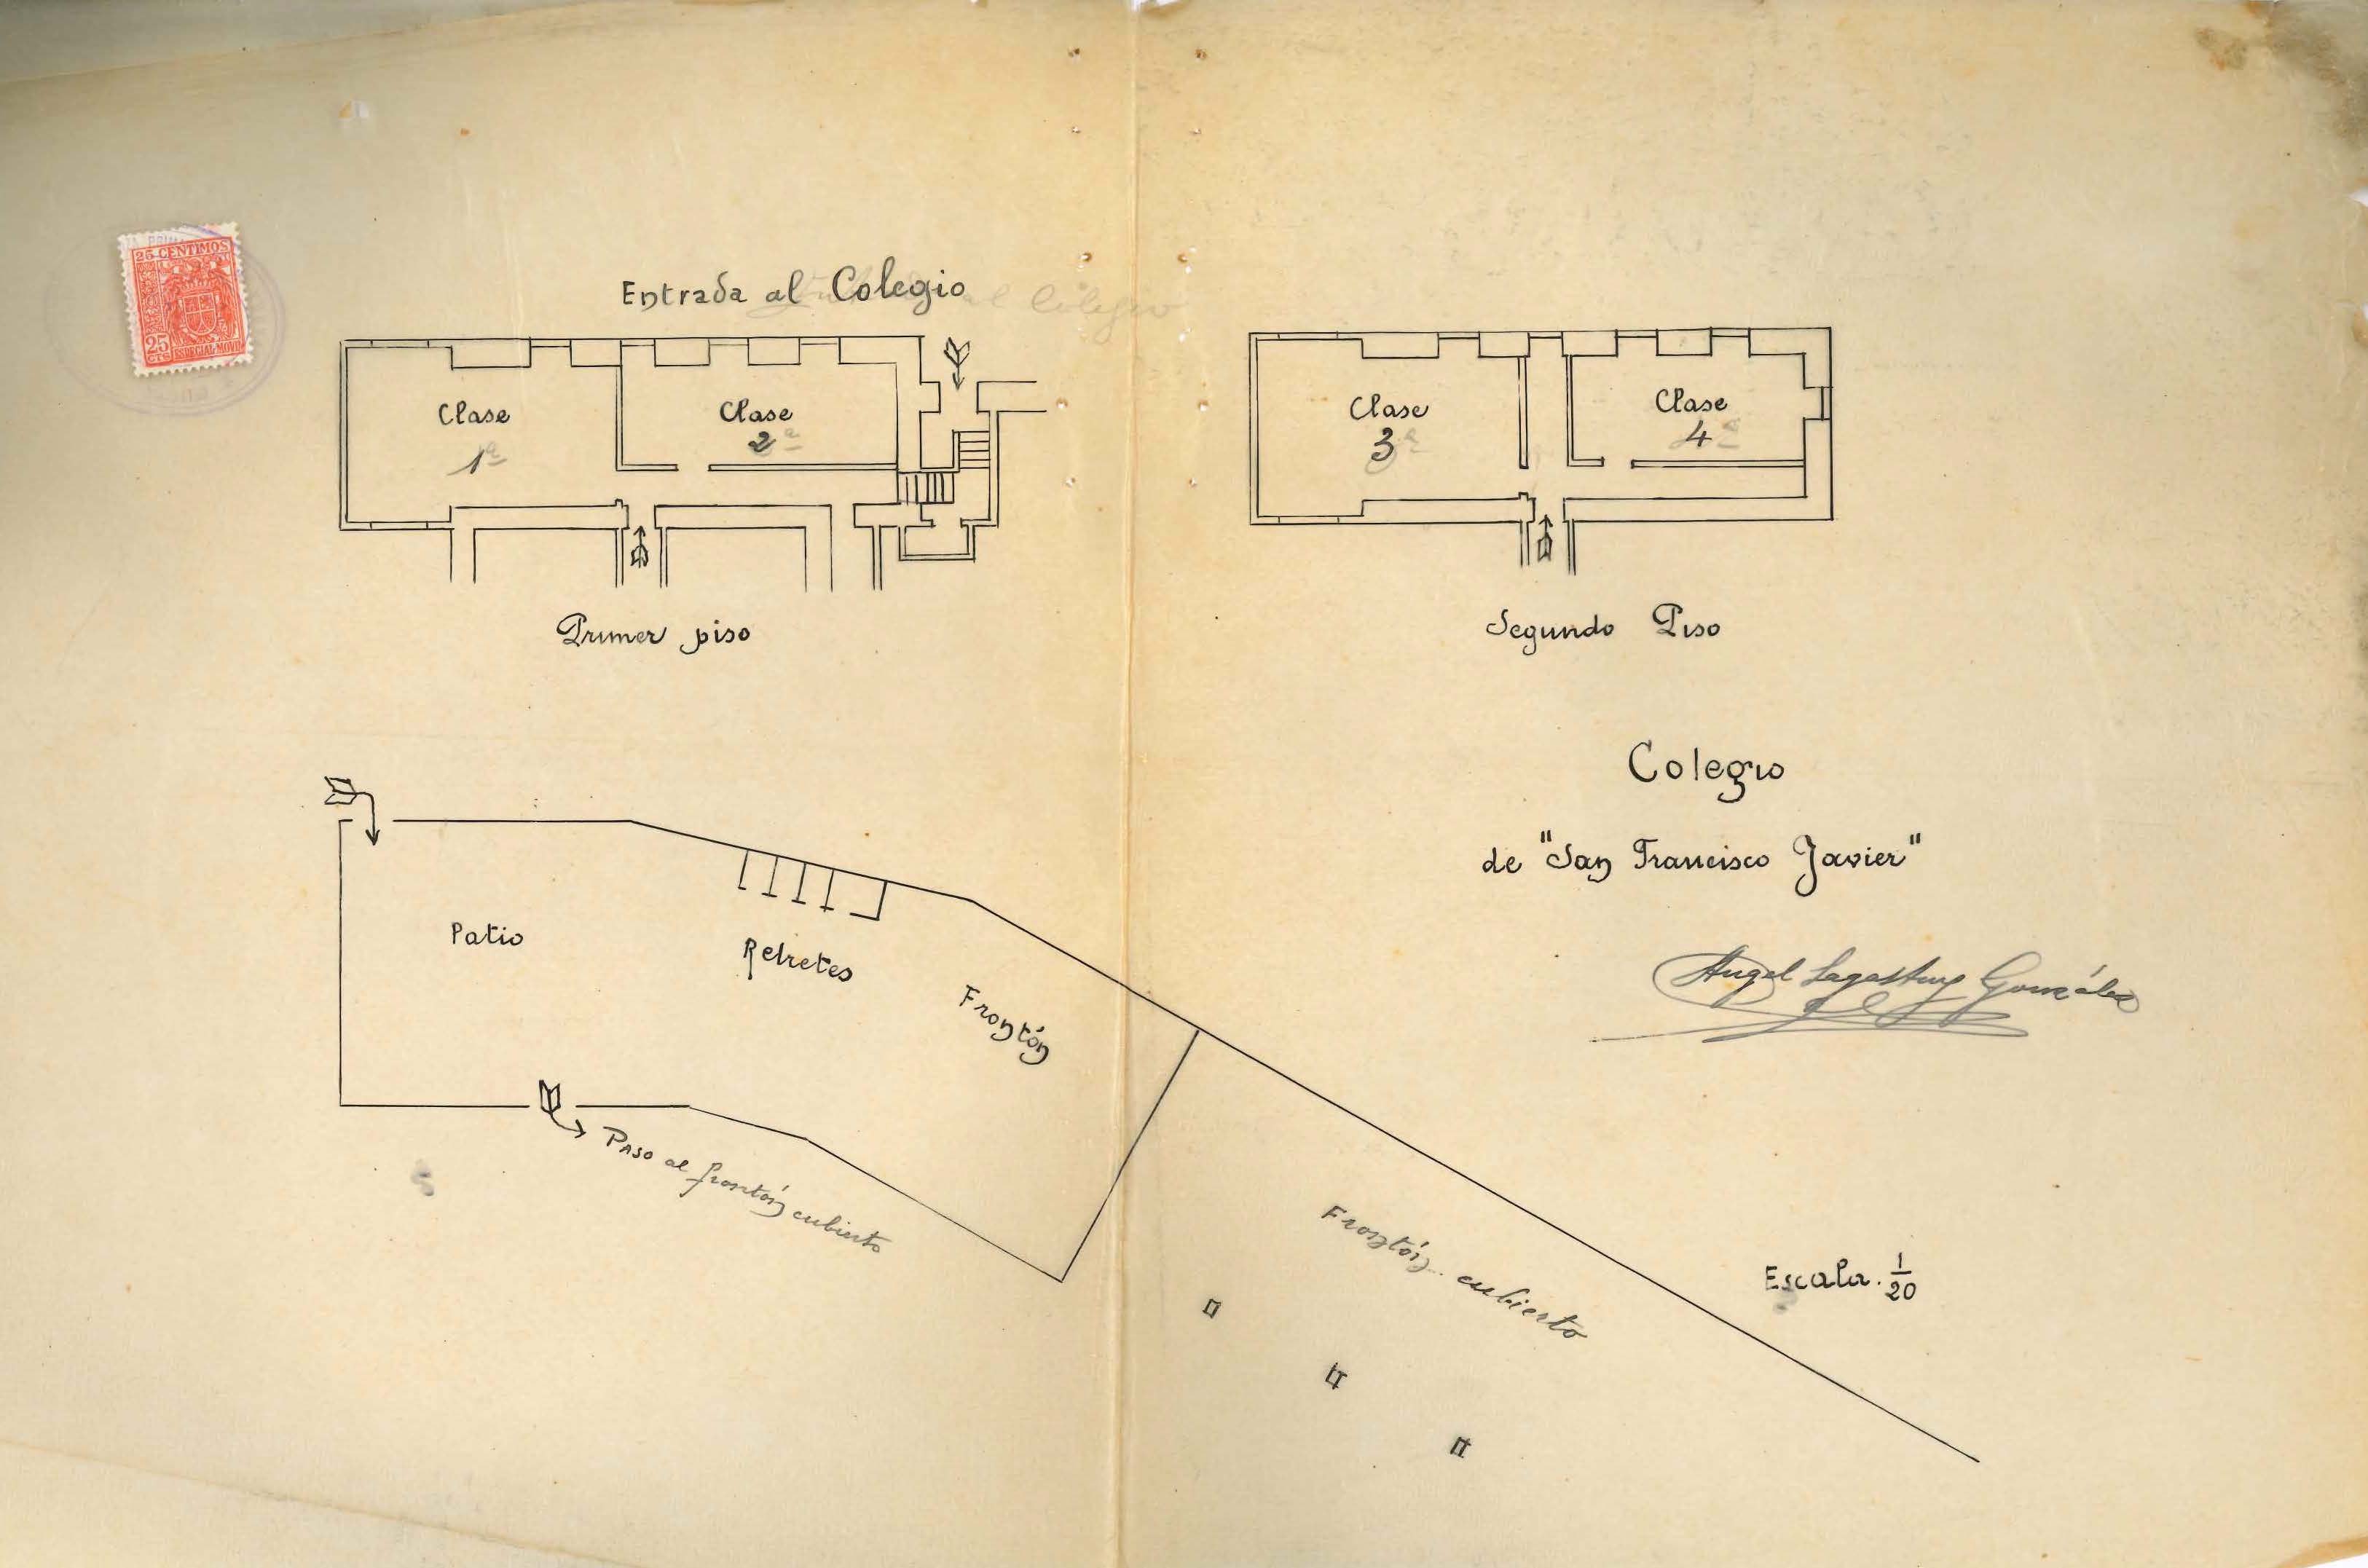 25 CENTIMOS
25
CTS
ESPECIAL MOVIL
Entrada al Colegio
Clase
1ª
Clase
2ª
Primer piso
Clase
3ª
Clase
4ª
Segundo Piso
Colegio
de "San Francisco Javier"
Angel González
Patio
Retretes
Frontón
Paso al frontón cubierto
Frontón cubierto
Escala. 1/20